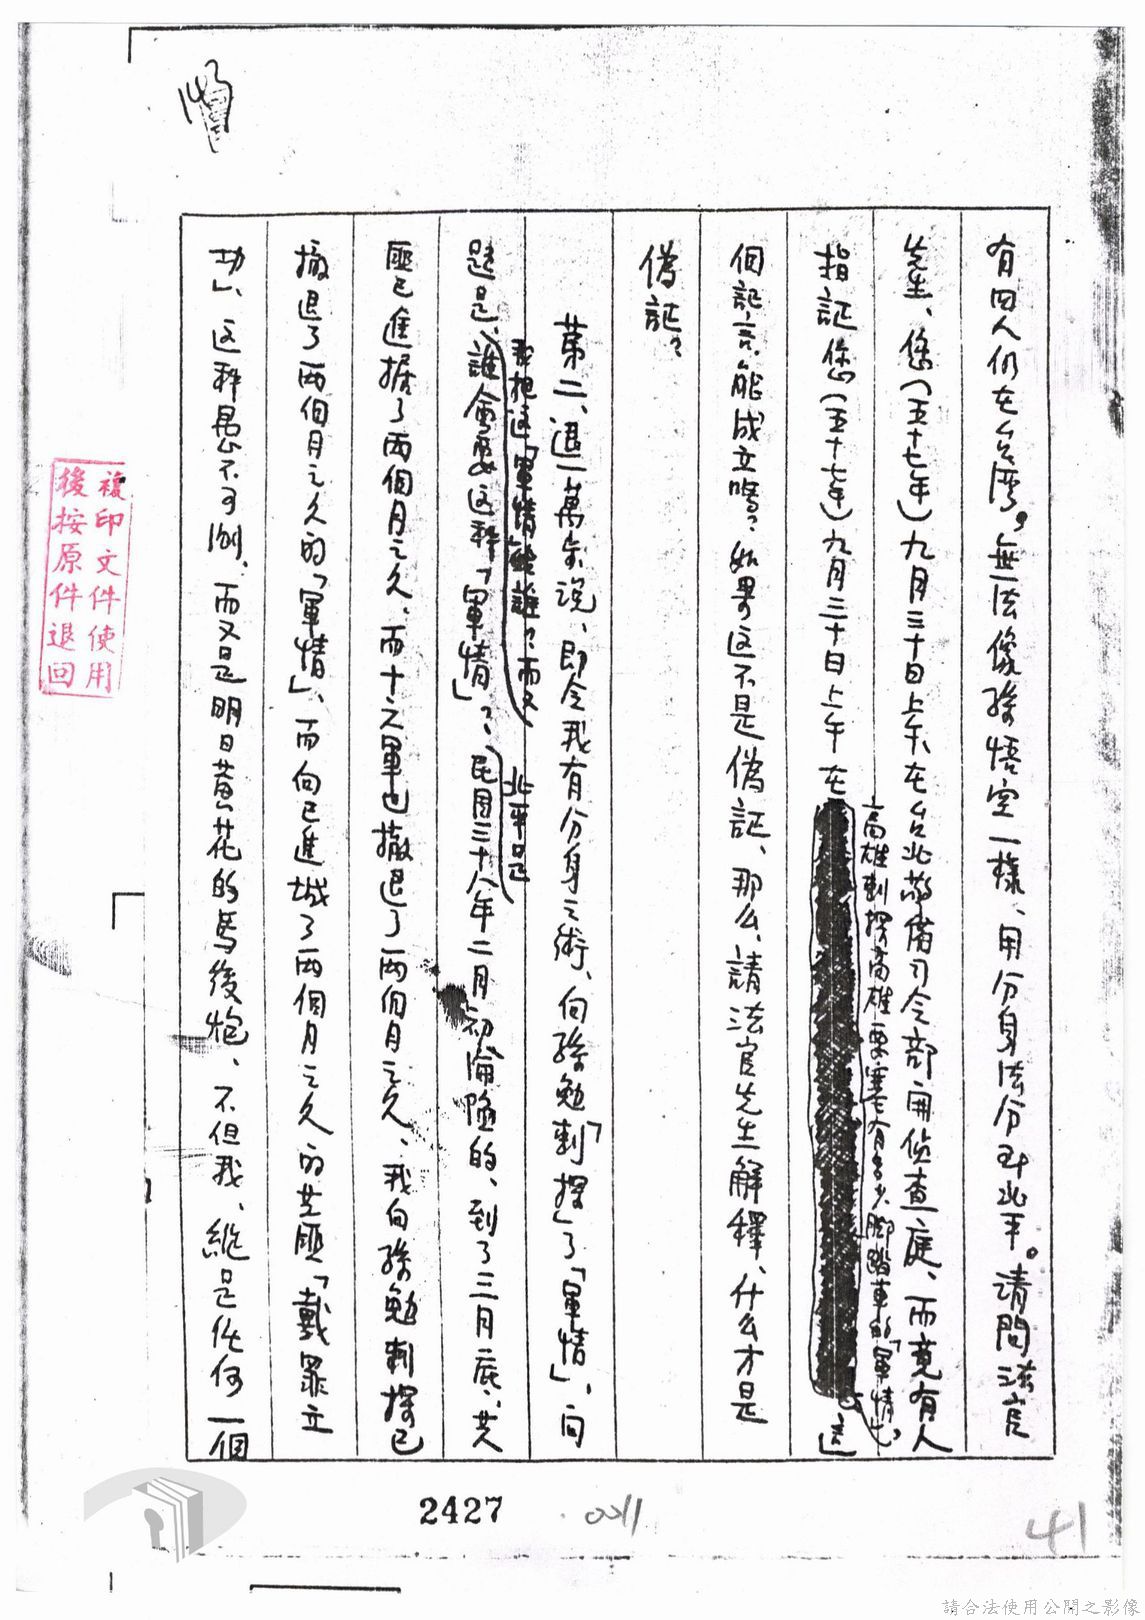 有四人仍在台湾。無法像孫悟空一樣、用分身法分到北平。请問法官
先生、您（五十七年）九月三十日上午、在台北警備司令部開偵查庭、而竟有人
指証您（五十七年）九月三十日上午在
高雄刺探高雄要塞有多少腳踏車的「軍情」、
這
個証言能成立嗎？如果这不是偽証、那么、請法官先生解釋、什么才是
偽証？
第二、退一萬步说、即令我有分身之術、向孫勉「刺探」了「軍情」、问
題是、
我把这「軍情」給誰？而又
誰會要这种「軍情」？
北平是
民國三十八年二月初淪陷的、到了三月底、共
匪已進據了兩個月之久、而十六軍也撤退了兩個月之久、我向孫勉刺探已
撤退了兩個月之久的「軍情」、而向已進城了兩個月之久的共匪「戴罪立
功」、这种愚不可測、而又是明日黃花的馬後炮、不但我、縱是任何一個
複印文件使用
後按原件退回
2427
0011
41
請合法使用公開之影像